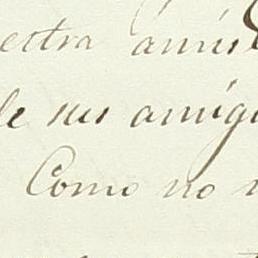 estra amis
de sus amig
Como no